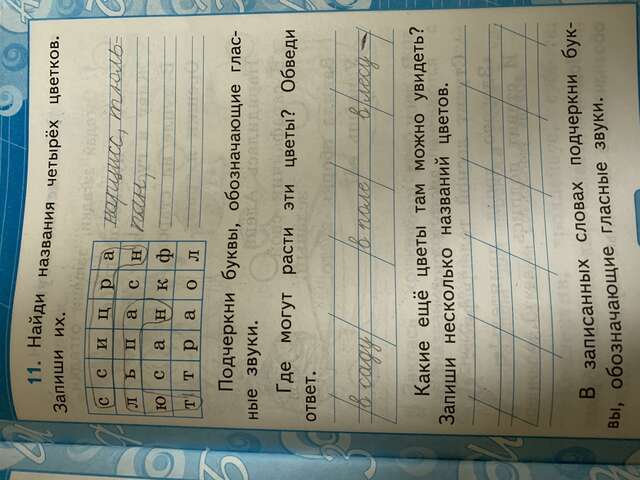 11. Найди названия четырёх цветков.
Запиши их.
с с и ц р а
нарцисс, тюль-
л ь п а с н
пан,
ю с а н к ф
т т р а о л
Подчеркни буквы, обозначающие глас-
ные звуки.
Где могут расти эти цветы? Обведи
ответ.
в саду в поле в лесу
Какие ещё цветы там можно увидеть?
Запиши несколько названий цветов.
В записанных словах подчеркни бук-
вы, обозначающие гласные звуки.